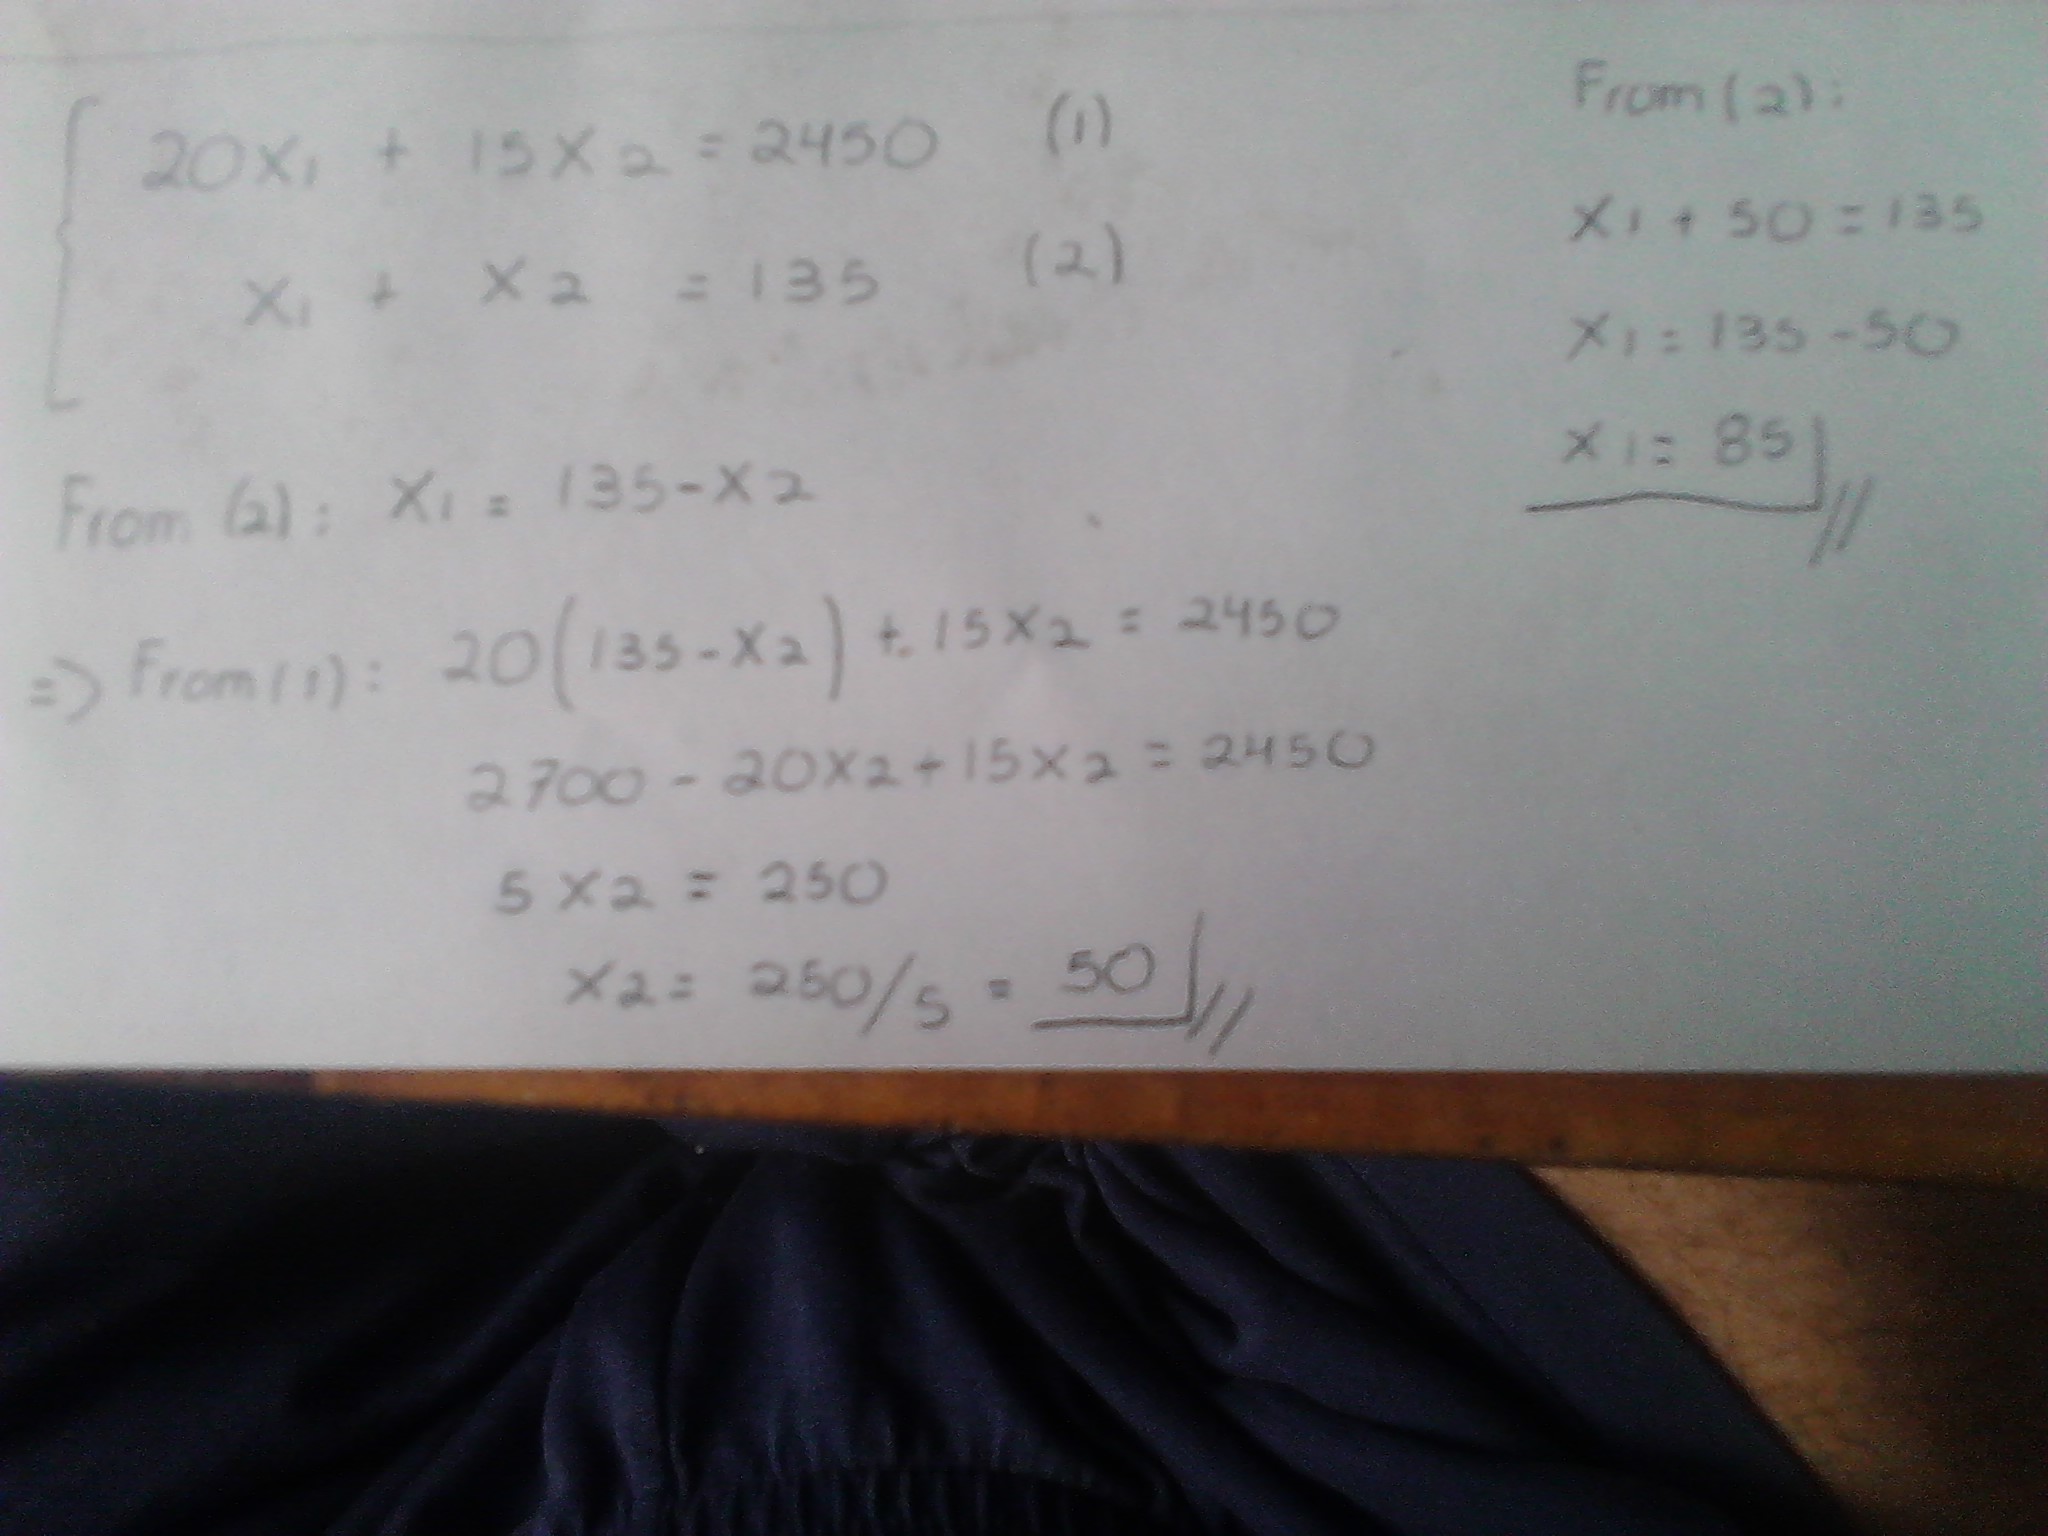 20x1 + 15x2 = 2450 (1)
x1 + x2 = 135 (2)
From (2): x1 = 135-x2
=> From (1): 20(135-x2) + 15x2 = 2450
2700 - 20x2 + 15x2 = 2450
5x2 = 250
x2 = 250/5 = 50
From (2):
x1 + 50 = 135
x1 = 135-50
x1 = 85